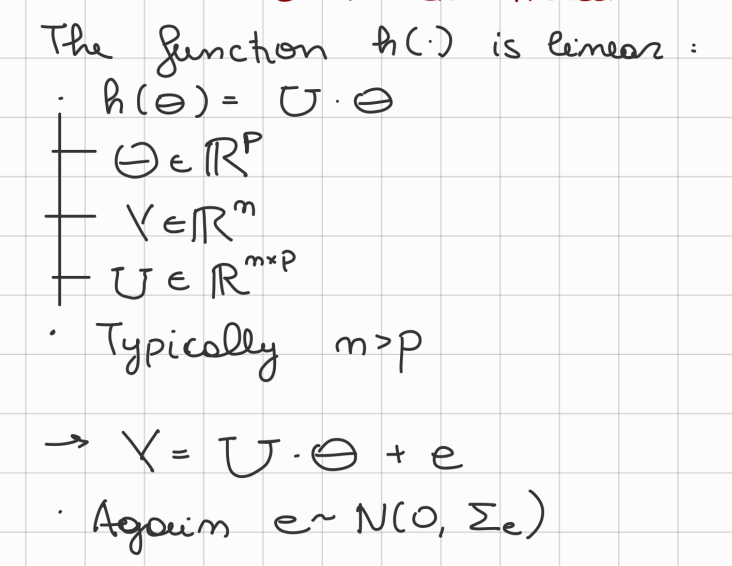 The function h(·) is linear:
· h(θ) = U · θ
θ ∈ ℝᵖ
Y ∈ ℝⁿ
U ∈ ℝⁿˣᵖ
· Typically n>p
→ Y = U · θ + e
· Again e ~ N(0, Σₑ)